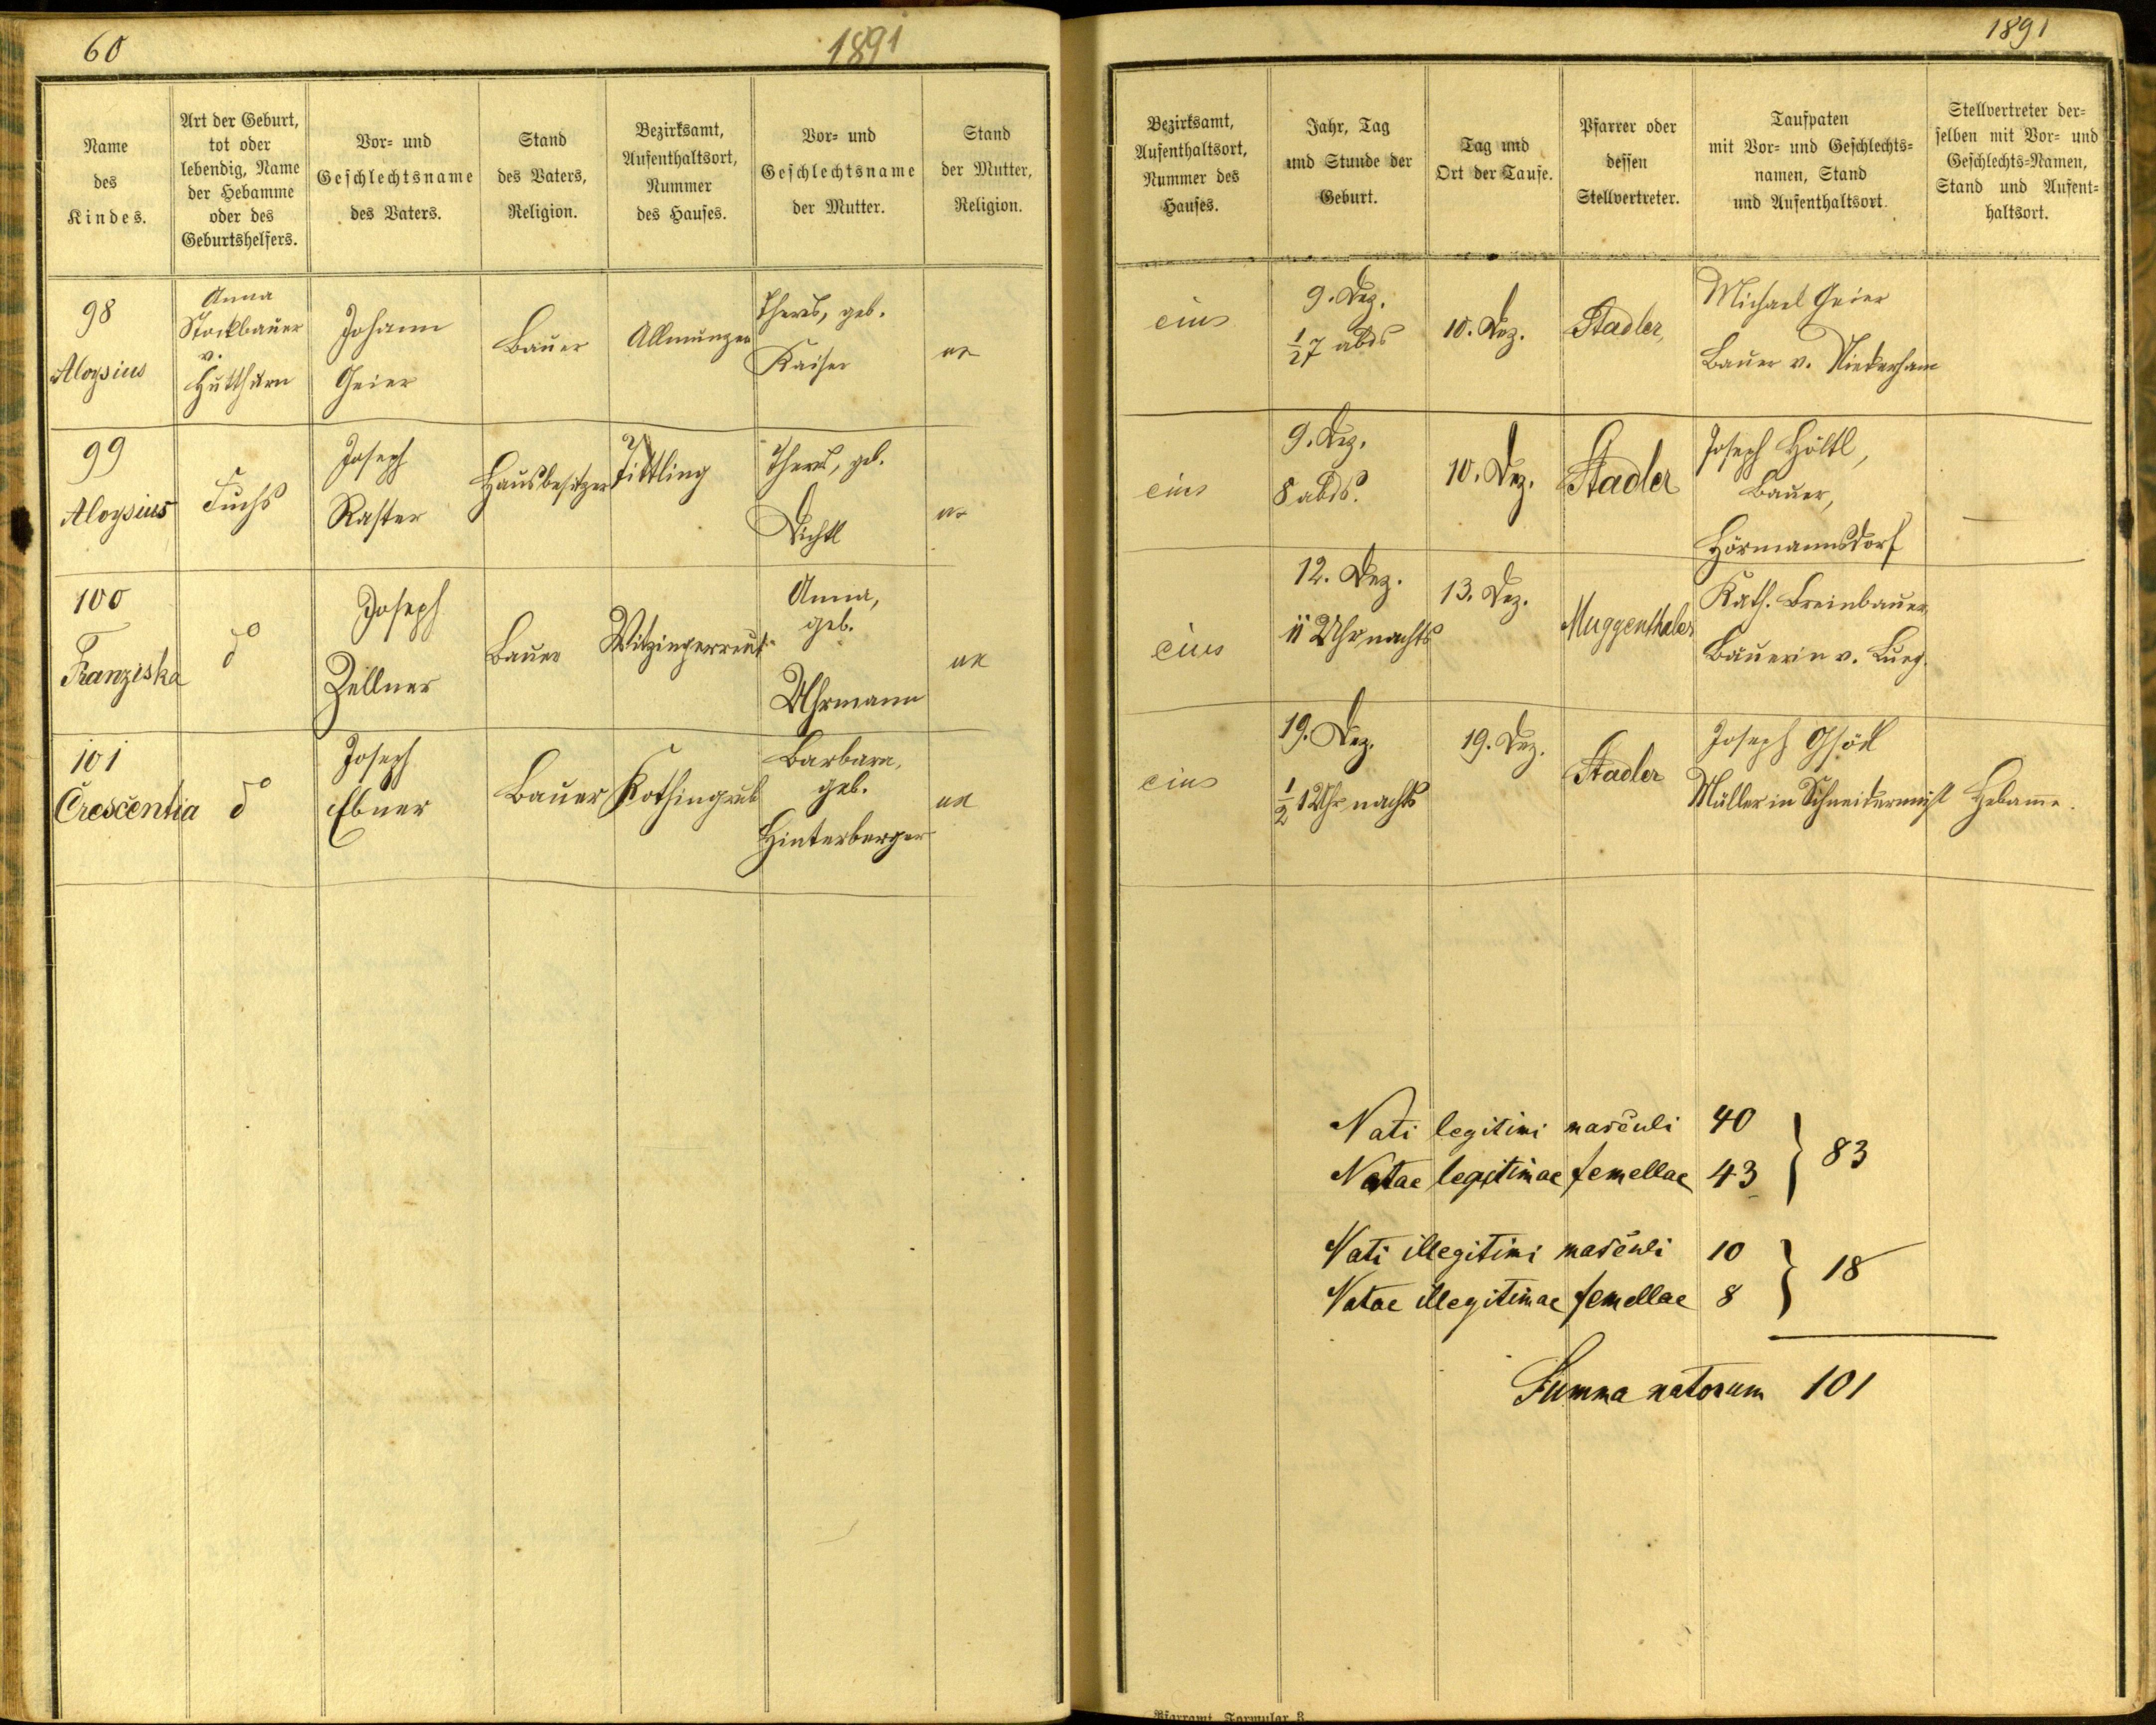 60
1891
Name
des
Kindes.
Art der Geburt,
tot oder
lebendig, Name
der Hebamme
oder des
Geburtshelfers.
Vor- und
Geschlechtsname
des Vaters.
Stand
des Vaters,
Religion.
Bezirksamt,
Aufenthaltsort,
Nummer
des Hauses.
Vor- und
Geschlechtsname
der Mutter.
Stand
der Mutter,
Religion.
98
Aloysius
Anna
Stockbauer
v.
Hutthurn
Johann
Geier
Bauer
Allmunzen
Theres, geb.
Kaiser
99
Aloysius
Fuchs
Joseph
Raster
Hausbesitzer
Tittling
Theres, geb.
Dichtl
100
Franziska
do
Joseph
Zellner
Bauer
Witzingerreut
Anna,
geb.
Uhrmann
101
Crescentia
do
Joseph
Ebner
Bauer
Kothingrub
Barbara,
geb.
Hinterberger
1891
Bezirksamt,
Aufenthaltsort,
Nummer des
Hauses.
Jahr, Tag
und Stunde der
Geburt.
Tag und
Ort der Taufe.
Pfarrer oder
dessen
Stellvertreter.
Taufpaten
mit Vor- und Geschlechts-
namen, Stand
und Aufenthaltsort.
Stellvertreter der-
selben mit Vor- und
Geschlechts-Namen,
Stand und Aufent-
haltsort.
eius
9. Dez.
1/2 7 abds
10. Dez.
Stadler,
Michael Geier
Bauer v. Niederham
eius
9. Dez.
8 abds.
10. Dez.
Stadler
Joseph Höltl,
Bauer,
Hörmannsdorf
—
eius
12. Dez.
11 Uhr nachts
13. Dez.
Muggenthaler
Kath. Breinbauer
Bäuerin v. Lueg.
eius
19. Dez.
1/2 1 Uhr nachts
19. Dez.
Stadler
Joseph Gsödl
Müller in Schneidermühl
Hebamme.
Nati legitimi masculi 40
Natae legitimae femellae 43
83
Nati illegitimi masculi 10
Natae illegitimae femellae 8
18
Summa natorum 101
Pfarramt. Formular 3.